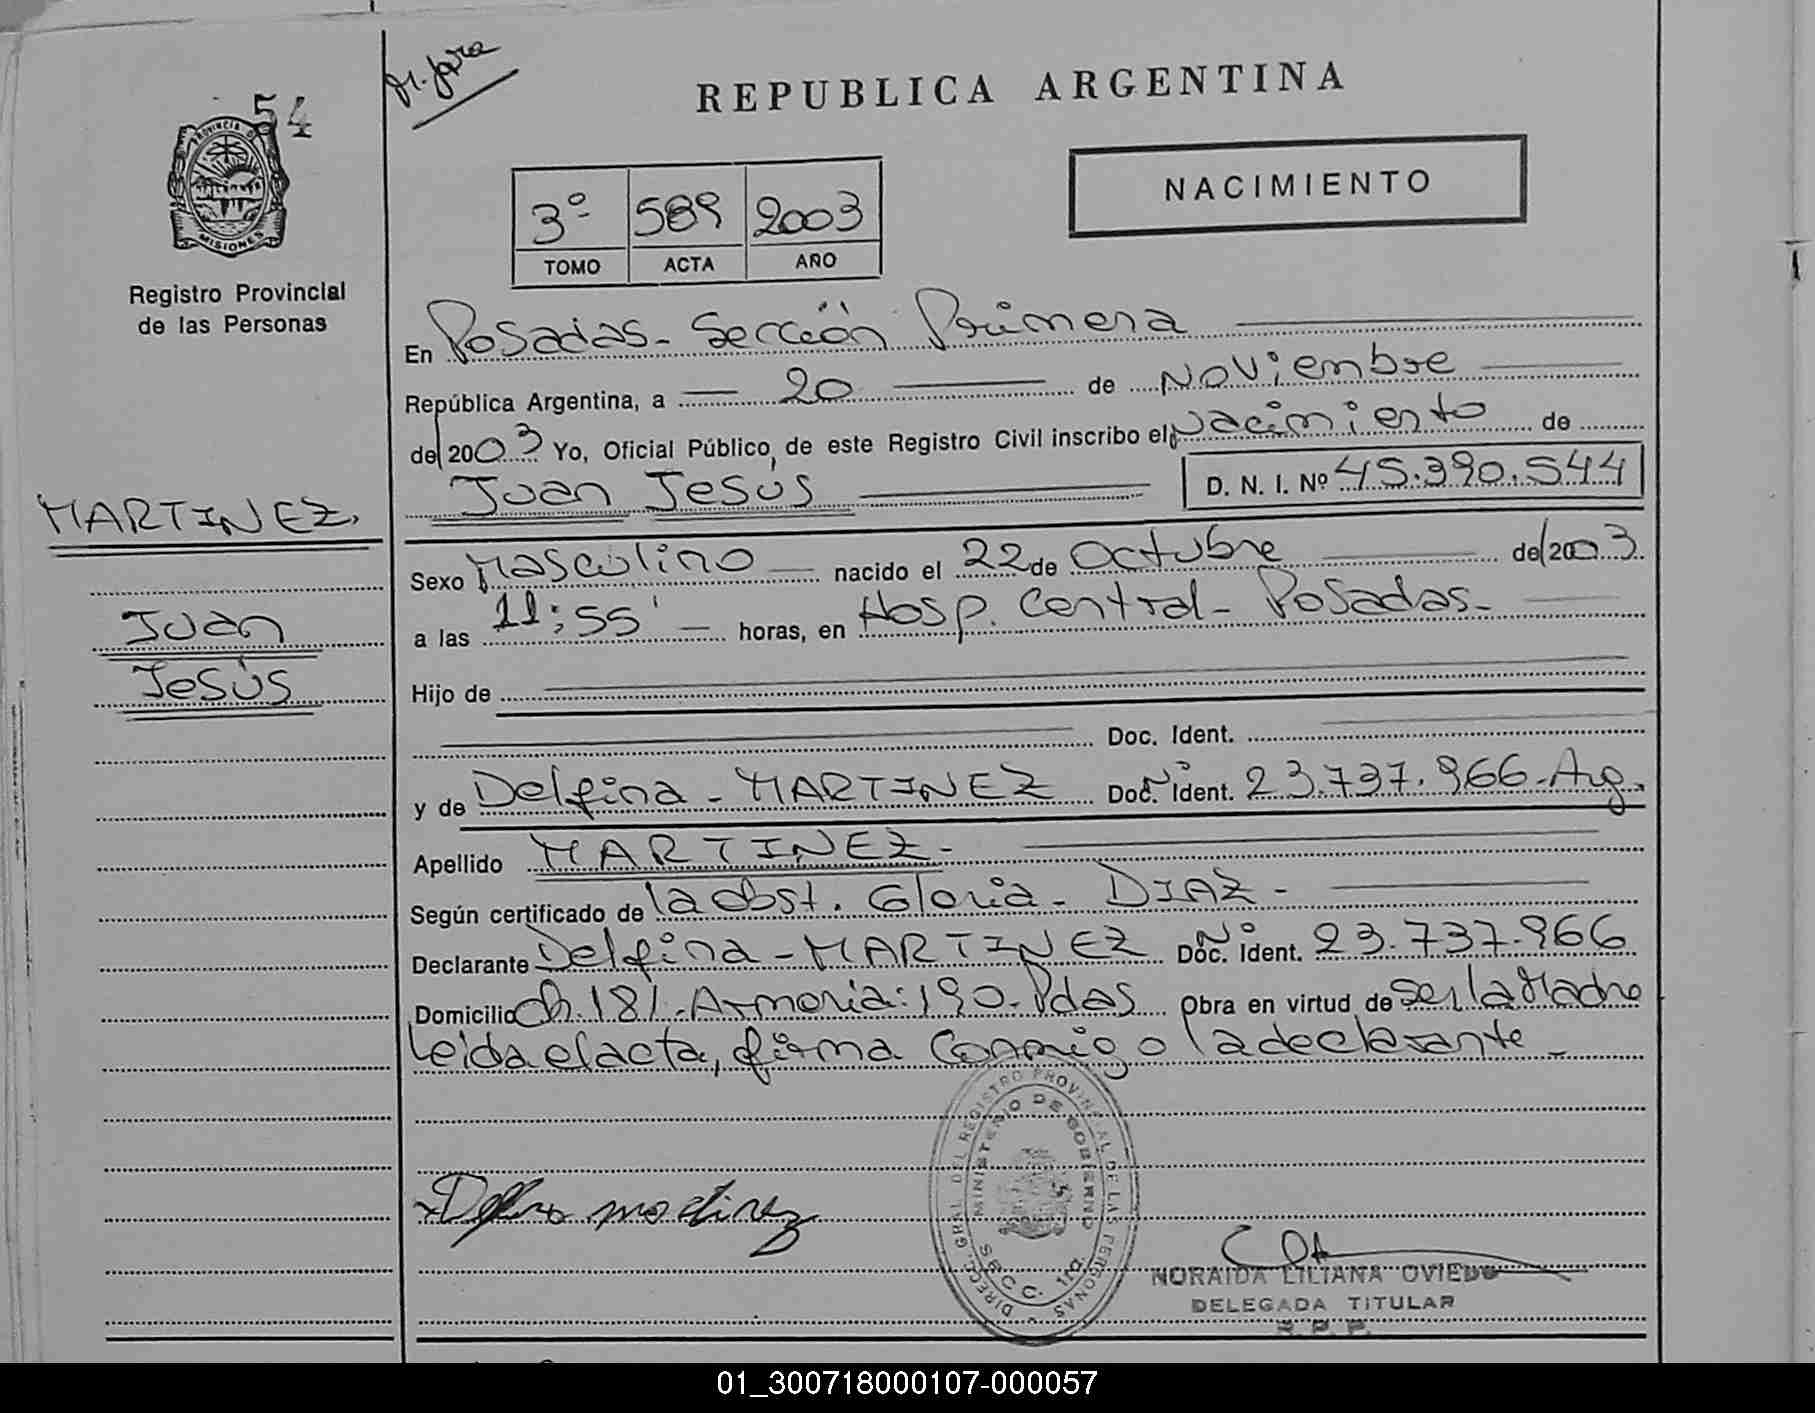 54
M. Jara
REPUBLICA ARGENTINA
PROVINCIA DE
MISIONES
3º 589 2003
TOMO ACTA AÑO
NACIMIENTO
Registro Provincial
de las Personas
En Posadas - Sección Primera
República Argentina, a 20 de Noviembre
de 2003 Yo, Oficial Público, de este Registro Civil inscribo el Nacimiento de
Juan Jesús D. N. I. Nº 45.390.544
MARTINEZ,
Juan
Jesús
Sexo Masculino nacido el 22 de Octubre de 2003
a las 11:55' horas, en Hosp. Central - Posadas -
Hijo de
Doc. Ident.
y de Delfina - MARTINEZ Doc. Nº Ident. 23.737.966 - Arg.
Apellido MARTINEZ -
Según certificado de la obst. Gloria - DIAZ -
Declarante Delfina - MARTINEZ Doc. Nº Ident. 23.737.966
Domicilio Ch. 181 - Armonia: 190 - Pdas Obra en virtud de ser la Madre
Leida el acta, firma conmigo la declarante -
DIRECC. GRAL. DEL REGISTRO PROVINCIAL DE LAS PERSONAS
MINISTERIO DE GOBIERNO
SECC. 1ra.
NORAIDA LILIANA OVIEDO
DELEGADA TITULAR
R. P. P.
01_300718000107-000057